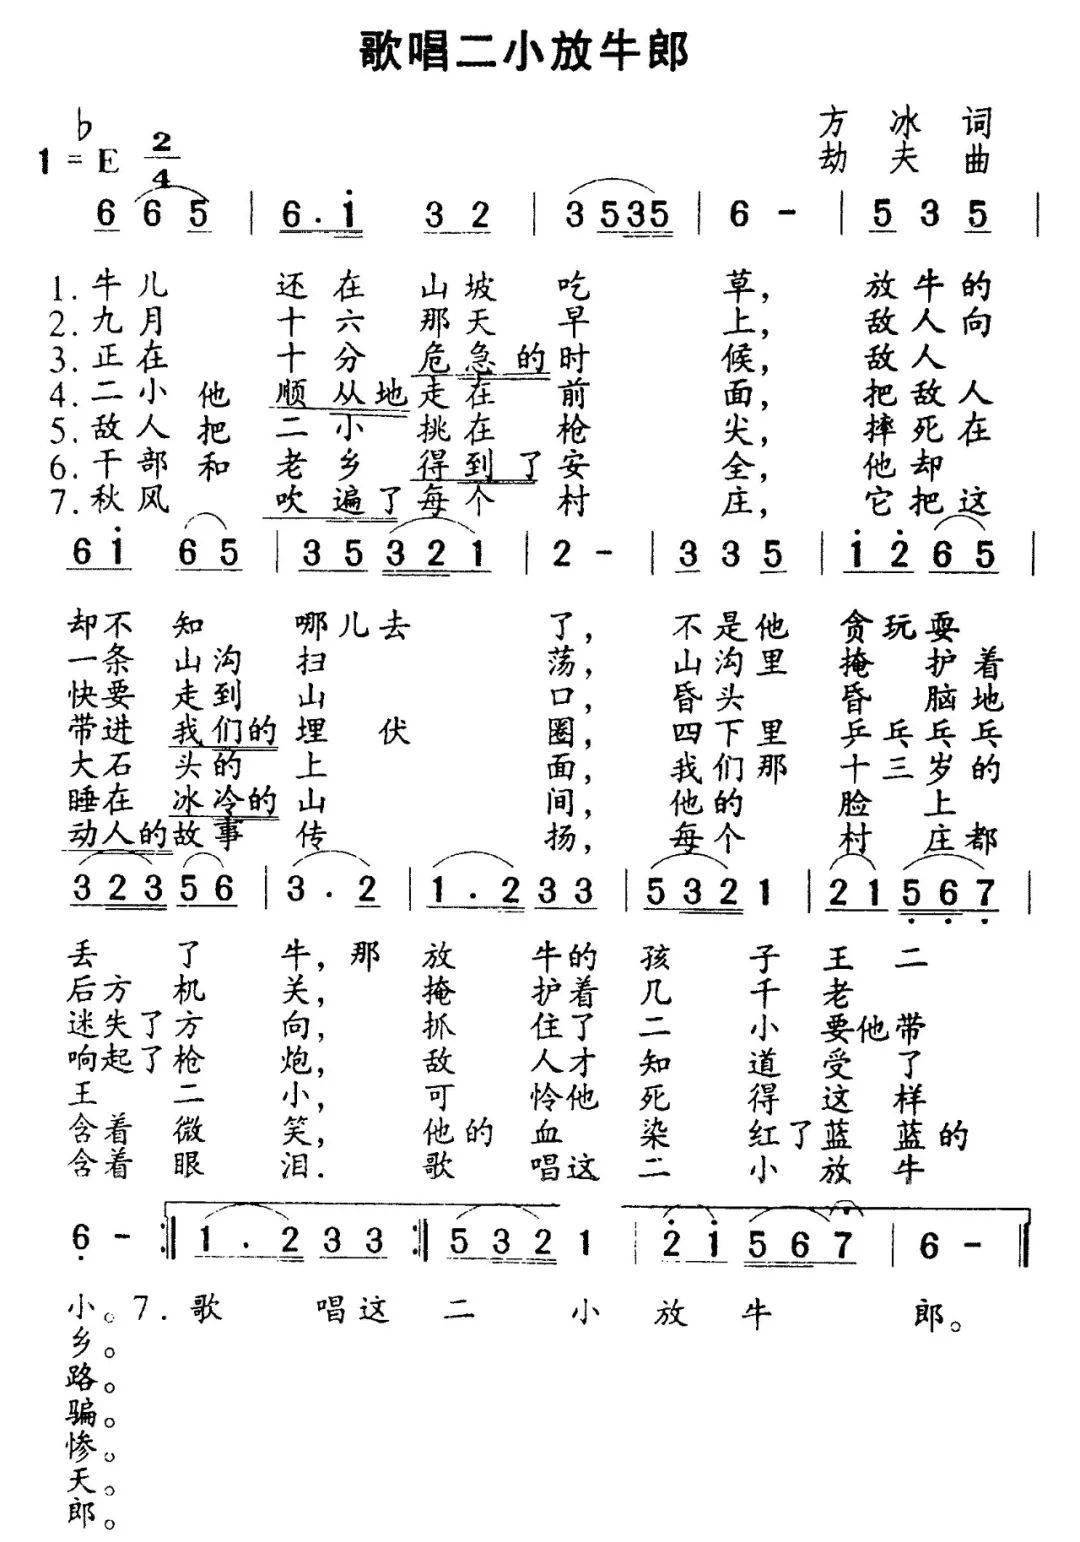 歌唱二小放牛郎
方冰词
1=♭E 2/4
劫夫曲
6 6 5 | 6 . i 3 2 | 3 5 3 5 | 6 - | 5 3 5 |
1.牛儿 还在 山坡 吃 草, 放牛的
2.九月 十六 那天 早 上, 敌人向
3.正在 十分 危急的时 候, 敌人
4.二小他 顺从地走在 前 面, 把敌人
5.敌人把 二小 挑在 枪 尖, 摔死在
6.干部和 老乡 得到了安 全, 他却
7.秋风 吹遍了每个 村 庄, 它把这
6 i 6 5 | 3 5 3 2 1 | 2 - | 3 3 5 | i 2 6 5 |
却不 知 哪儿去 了, 不是他 贪玩耍
一条 山沟 扫 荡, 山沟里 掩护着
快要 走到 山 口, 昏头 昏脑地
带进 我们的 埋伏 圈, 四下里 乒乓乓乓
大石 头的 上 面, 我们那 十三岁的
睡在 冰冷的 山 间, 他的 脸上
动人的故事 传 扬, 每个 村庄都
3 2 3 5 6 | 3 . 2 | 1 . 2 3 3 | 5 3 2 1 | 2 1 5 6 7 |
丢了 牛, 那放 牛的 孩子 王二
后方机 关, 掩 护着 几千 老
迷失了方 向, 抓 住了 二小 要他带
响起了枪 炮, 敌 人才 知道 受了
王二 小, 可 怜他 死得 这样
含着微 笑, 他的 血 染红了蓝蓝的
含着眼 泪. 歌 唱这 二小 放牛
6 - :| 1 . 2 3 3 :| 5 3 2 1 | 2 i 5 6 7 | 6 - |
小。7.歌 唱这 二 小 放 牛 郎。
乡。
路。
骗。
惨。
天。
郎。